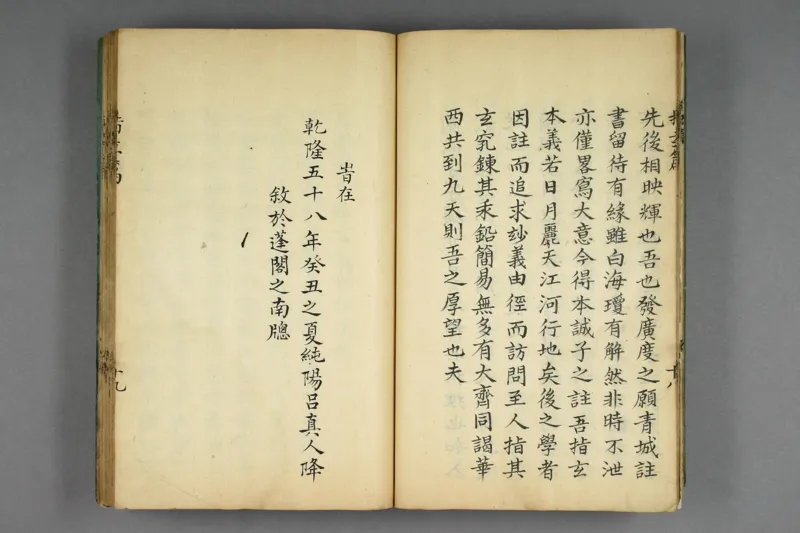 指玄篇
先後相映輝也吾也發廣度之願青城註
書留待有緣雖白海瓊有解然非時不泄
亦僅畧寫大意今得本誠子之註吾指玄
本義若日月麗天江河行地矣後之學者
因註而追求玅義由徑而訪問至人指其
玄究鍊其汞鉛簡易無多有大齊同謁華
西共到九天則吾之厚望也夫
十八
旹在
乾隆五十八年癸丑之夏純陽吕真人降
敘於蓬閣之南牎
十九